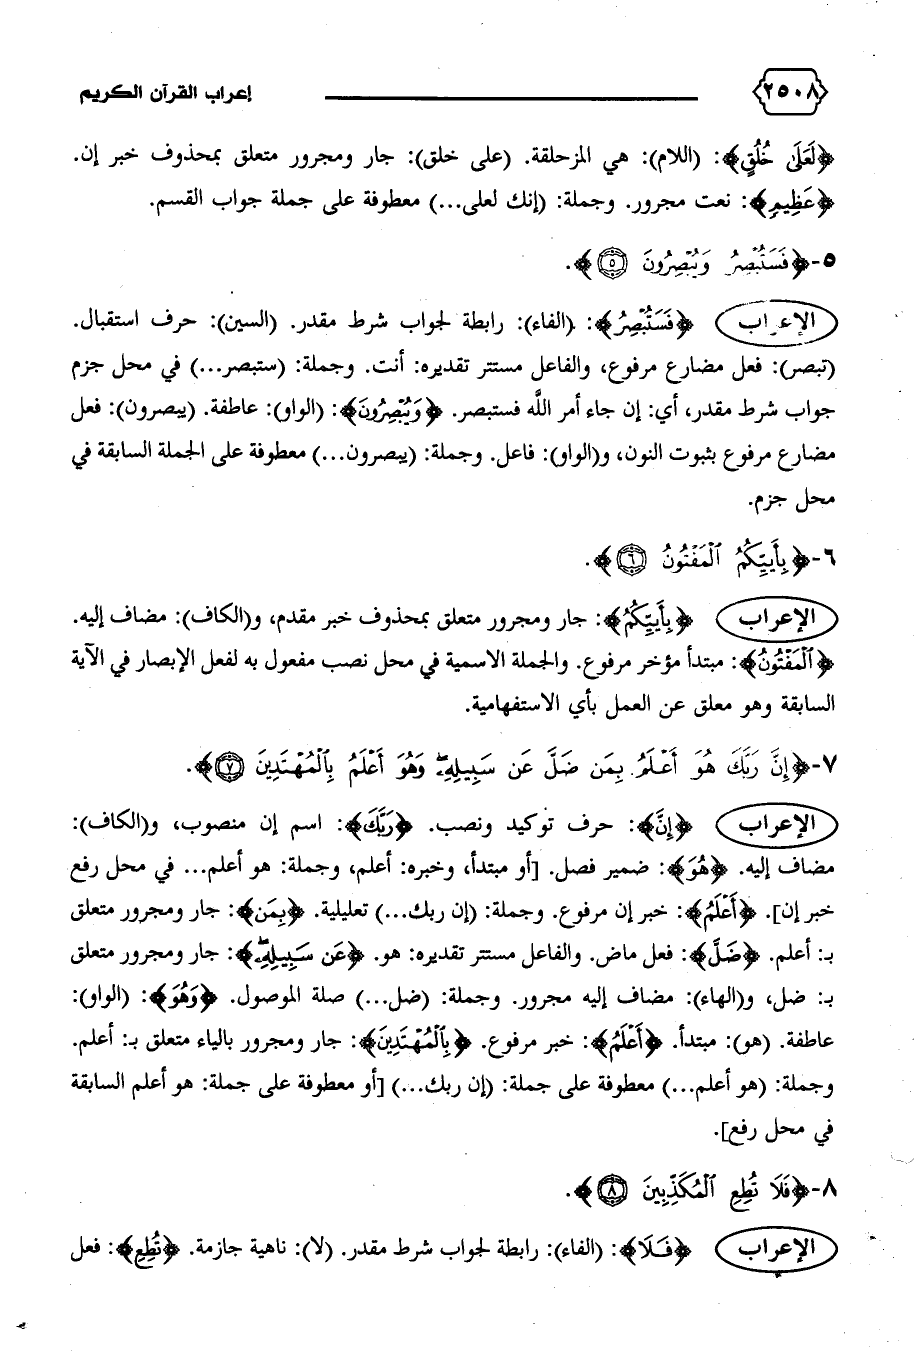 ٢٥٠٨ إعراب القرآن الكريم
﴿لَعَلَىٰ خُلُقٍ﴾: (اللام): هي المزحلقة. (على خلق): جار ومجرور متعلق بمحذوف خبر إن.
﴿عَظِيمٍ﴾: نعت مجرور. وجملة: (إنك لعلى...) معطوفة على جملة جواب القسم.
٥-﴿فَسَتُبْصِرُ وَيُبْصِرُونَ ۝٥﴾.
الإعراب ﴿فَسَتُبْصِرُ﴾: (الفاء): رابطة لجواب شرط مقدر. (السين): حرف استقبال.
(تبصر): فعل مضارع مرفوع، والفاعل مستتر تقديره: أنت. وجملة: (ستبصر...) في محل جزم
جواب شرط مقدر، أي: إن جاء أمر الله فستبصر. ﴿وَيُبْصِرُونَ﴾: (الواو): عاطفة. (يبصرون): فعل
مضارع مرفوع بثبوت النون، و(الواو): فاعل. وجملة: (يبصرون...) معطوفة على الجملة السابقة في
محل جزم.
٦-﴿بِأَييِّكُمُ ٱلْمَفْتُونُ ۝٦﴾.
الإعراب ﴿بِأَييِّكُمُ﴾: جار ومجرور متعلق بمحذوف خبر مقدم، و(الكاف): مضاف إليه.
﴿ٱلْمَفْتُونُ﴾: مبتدأ مؤخر مرفوع. والجملة الاسمية في محل نصب مفعول به لفعل الإبصار في الآية
السابقة وهو معلق عن العمل بأي الاستفهامية.
٧-﴿إِنَّ رَبَّكَ هُوَ أَعْلَمُ بِمَن ضَلَّ عَن سَبِيلِهِۦ وَهُوَ أَعْلَمُ بِٱلْمُهْتَدِينَ ۝٧﴾.
الإعراب ﴿إِنَّ﴾: حرف توكيد ونصب. ﴿رَبَّكَ﴾: اسم إن منصوب، و(الكاف):
مضاف إليه. ﴿هُوَ﴾: ضمير فصل. [أو مبتدأ، وخبره: أعلم، وجملة: هو أعلم... في محل رفع
خبر إن]. ﴿أَعْلَمُ﴾: خبر إن مرفوع. وجملة: (إن ربك...) تعليلية. ﴿بِمَن﴾: جار ومجرور متعلق
بـ: أعلم. ﴿ضَلَّ﴾: فعل ماض. والفاعل مستتر تقديره: هو. ﴿عَن سَبِيلِهِۦ﴾: جار ومجرور متعلق
بـ: ضل، و(الهاء): مضاف إليه مجرور. وجملة: (ضل...) صلة الموصول. ﴿وَهُوَ﴾: (الواو):
عاطفة. (هو): مبتدأ. ﴿أَعْلَمُ﴾: خبر مرفوع. ﴿بِٱلْمُهْتَدِينَ﴾: جار ومجرور بالياء متعلق بـ: أعلم.
وجملة: (هو أعلم...) معطوفة على جملة: (إن ربك...) [أو معطوفة على جملة: هو أعلم السابقة
في محل رفع].
٨-﴿فَلَا تُطِعِ ٱلْمُكَذِّبِينَ ۝٨﴾.
الإعراب ﴿فَلَا﴾: (الفاء): رابطة لجواب شرط مقدر. (لا): ناهية جازمة. ﴿تُطِعِ﴾: فعل